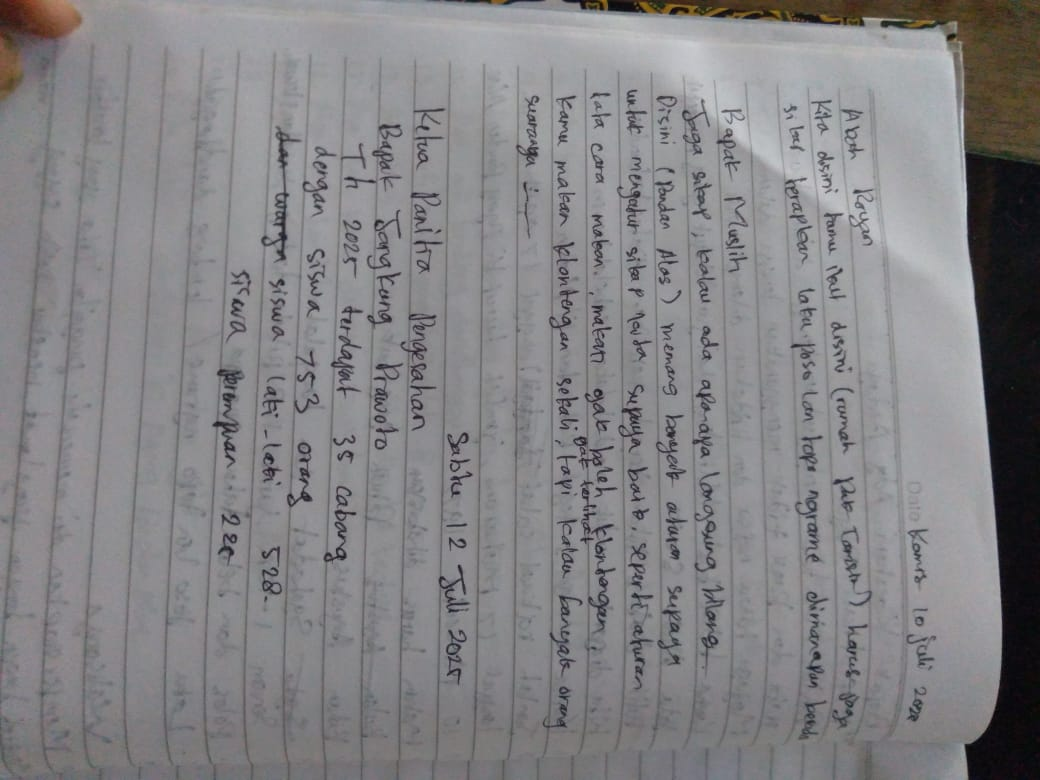 Kamis 10 juli 2025
Abah Royan
Kita disini tamu ibu disini (rumah pak Tamsir) harus jaga
sikap terapkan laku poso lan topo ngrame dimanapun berada
Bapak Muslih
Jaga sikap, kalau ada apa-apa langsung bilang
Disini (Pandan Alas) memang banyak aturan supaya
untuk mengatur sikap kita supaya baik, seperti aturan
tata cara makan, makan gak boleh klontengan,
gak terlihat
kamu makan klontengan sekali, tapi kalau banyak orang
suaranya
Sabtu 12 Juli 2025
Ketua Panitia Pengesahan
Bapak Jangkung Prawoto
Th 2025 terdapat 35 cabang
dengan siswa 753 orang
dan warga siswa laki-laki 528
siswa perempuan 225